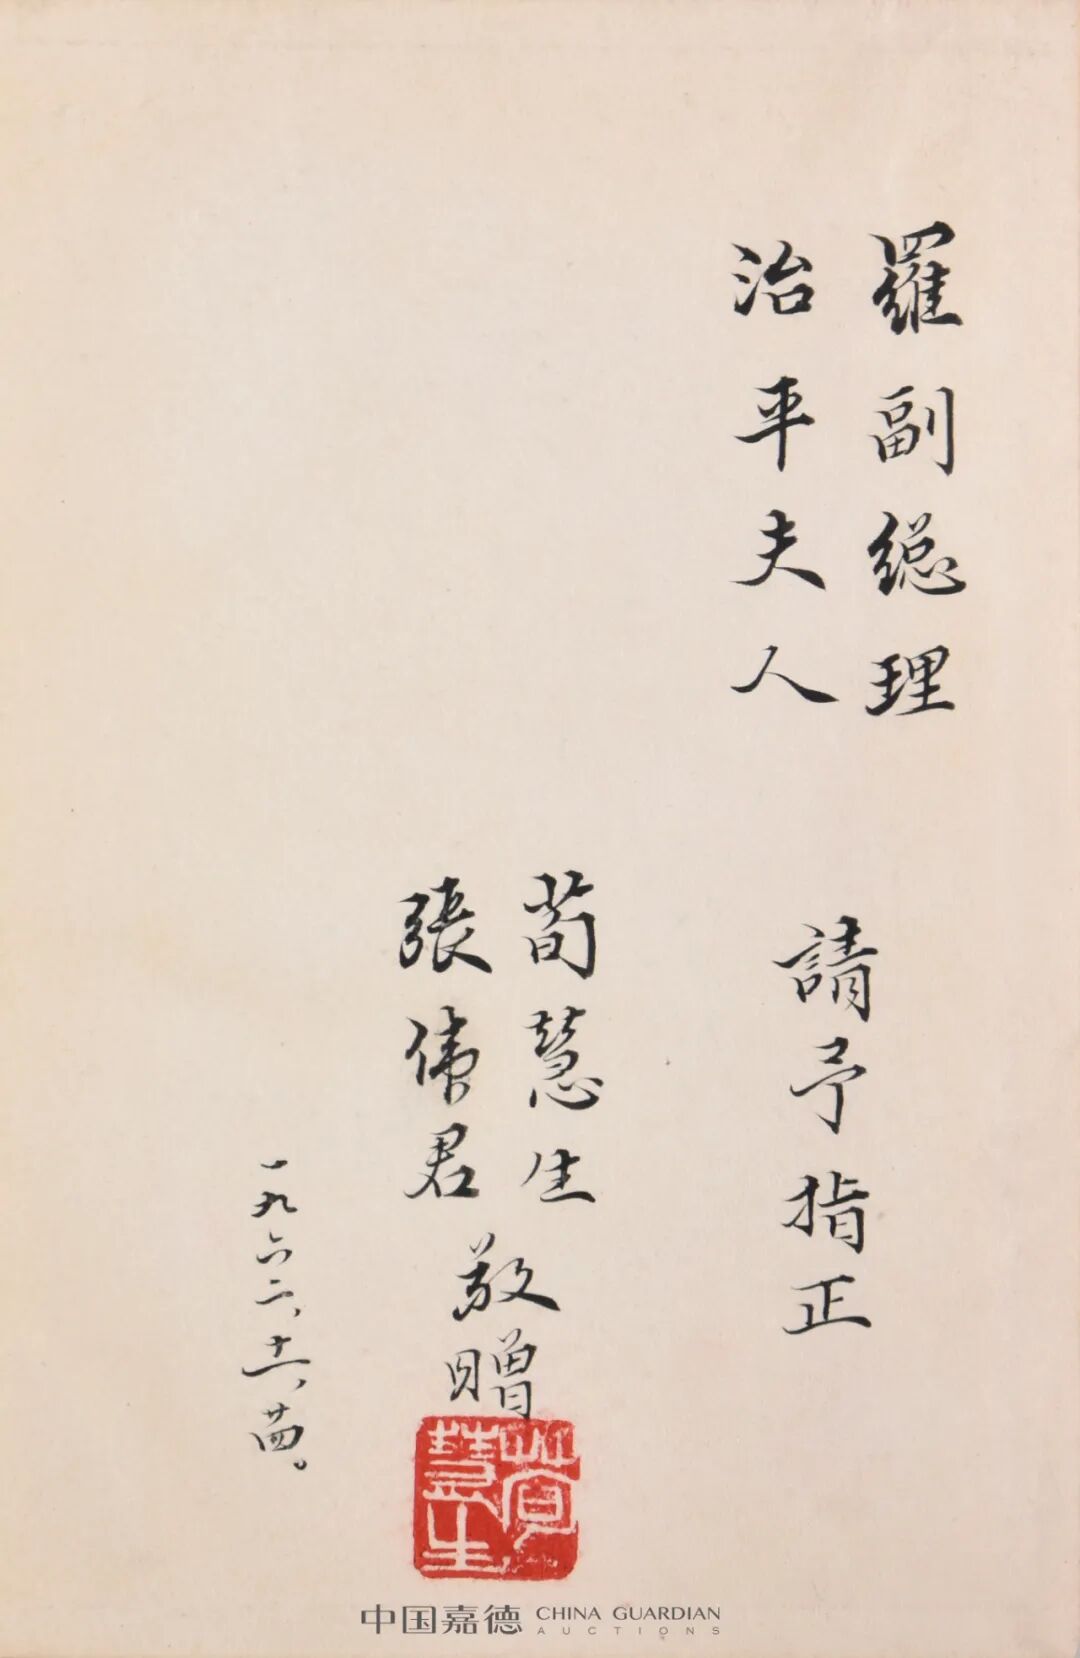 羅副總理
治平夫人
請予指正
荀慧生
張偉君
敬贈
一九六二、十一、廿四。
荀慧生
中国嘉德 CHINA GUARDIAN
AUCTIONS